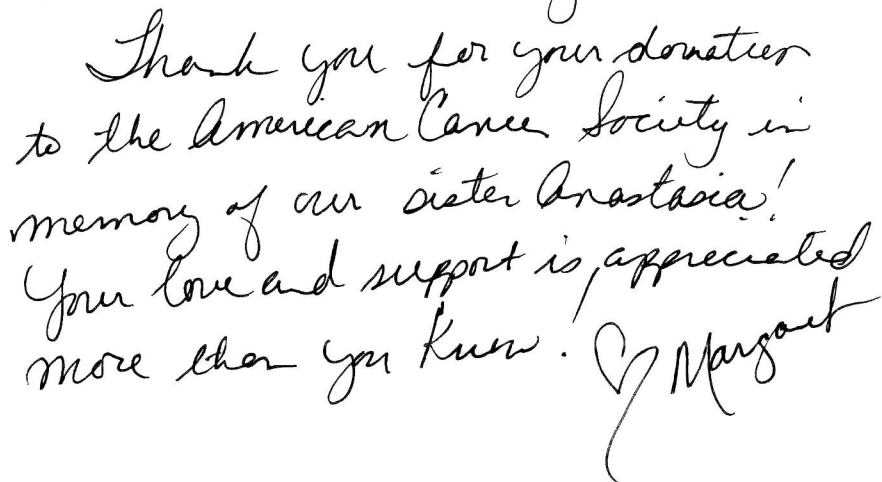 Thank you for your donation
to the American Cancer Society in
memory of our sister Anastasia!
Your love and support is appreciated
more than you know! ♡ Margaret